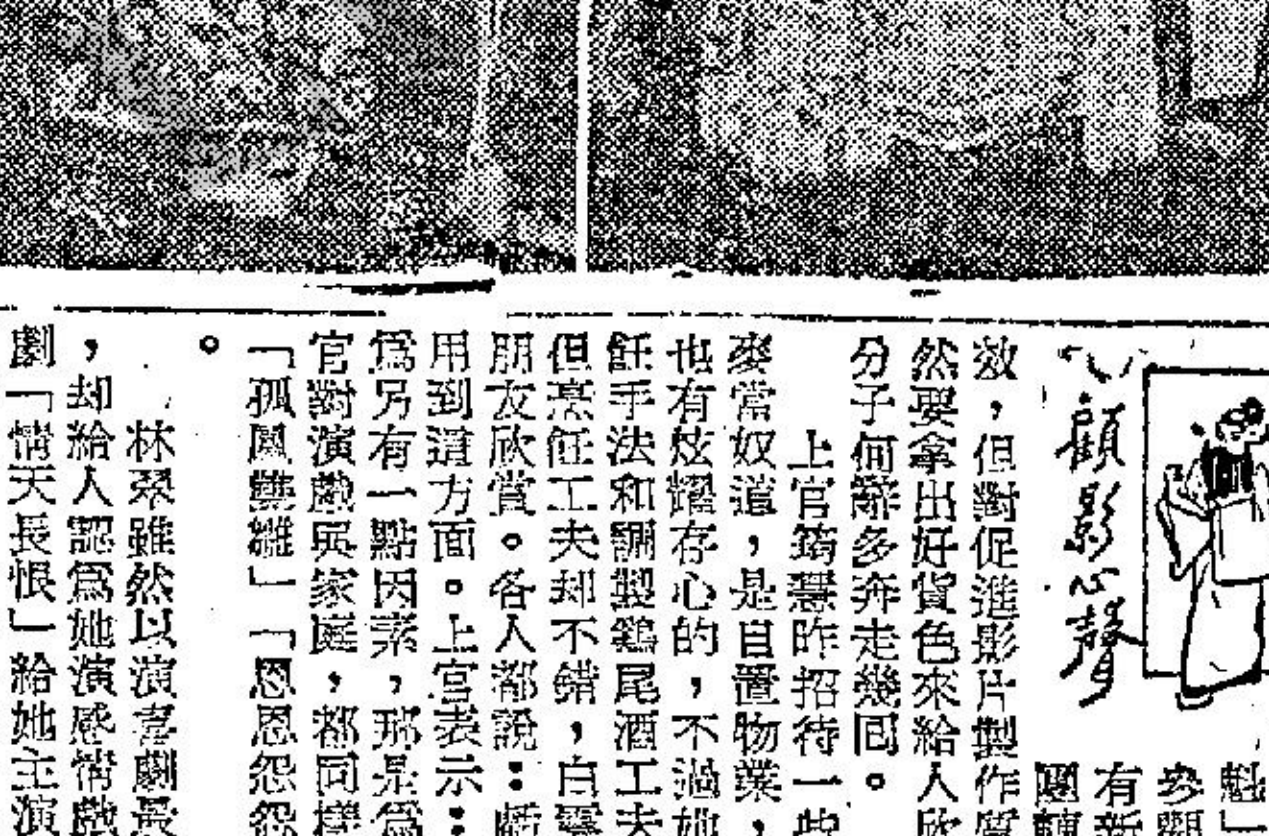 魁」
參觀
有新
團體
顧影心聲
效，但對促進影片製作質
然要拿出好貨色來給人欣
分子何辭多奔走幾回。
上官筠慧昨招待一些
麥當奴道，是自置物業，
也有炫耀存心的，不過她
飪手法和調製鷄尾酒工夫
但烹飪工夫却不錯，白雲
朋友欣賞。各人都說：
用到這方面。上官表示：
爲另有一點因素，那是爲
官對演戲與家庭，都同樣
「孤鳳雙雛」「恩恩怨怨
。
林翠雖然以演喜劇最
，却給人認爲她演感情戲
劇「情天長恨」給她主演